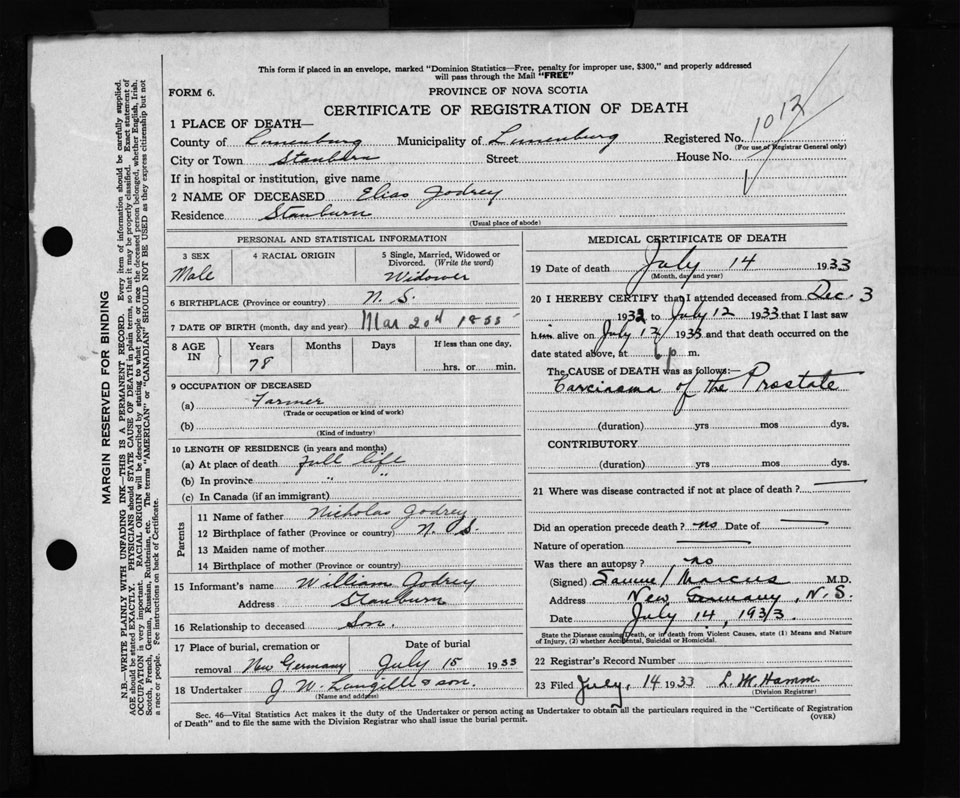 This form if placed in an envelope, marked "Dominion Statistics—Free, penalty for improper use, $300," and properly addressed
will pass through the Mail "FREE"
FORM 6.
PROVINCE OF NOVA SCOTIA
CERTIFICATE OF REGISTRATION OF DEATH
1012
1 PLACE OF DEATH—
County of Lunenburg Municipality of Lunenburg Registered No.
(For use of Registrar General only)
City or Town Stanburn Street House No.
If in hospital or institution, give name
2 NAME OF DECEASED Elias Godrey
Residence Stanburn
(Usual place of abode)
PERSONAL AND STATISTICAL INFORMATION
3 SEX 4 RACIAL ORIGIN 5 Single, Married, Widowed or
Divorced. (Write the word)
Male Widower
6 BIRTHPLACE (Province or country) N. S.
7 DATE OF BIRTH (month, day and year) Mar 20th 1855
8 AGE IN Years Months Days If less than one day,
78 hrs. or min.
9 OCCUPATION OF DECEASED
(a) Farmer
(Trade or occupation or kind of work)
(b)
(Kind of industry)
10 LENGTH OF RESIDENCE (in years and months)
(a) At place of death full life
(b) In province " "
(c) In Canada (if an immigrant)
Parents
11 Name of father Nicholas Godrey
12 Birthplace of father (Province or country) N. S.
13 Maiden name of mother
14 Birthplace of mother (Province or country)
15 Informant's name William Godrey
Address Stanburn
16 Relationship to deceased Son.
17 Place of burial, cremation or Date of burial
removal New Germany July 15 1933
18 Undertaker J. W. Langille & son.
(Name and address)
MEDICAL CERTIFICATE OF DEATH
19 Date of death July 14 1933
(Month, day and year)
20 I HEREBY CERTIFY that I attended deceased from Dec 3
1932 to July 12 1933 that I last saw
him alive on July 12 1933 and that death occurred on the
date stated above, at 6 p m.
The CAUSE of DEATH was as follows:
Carcinoma of the Prostate
(duration) yrs mos dys.
CONTRIBUTORY
(duration) yrs mos dys.
21 Where was disease contracted if not at place of death? —
Did an operation precede death? no Date of —
Nature of operation —
Was there an autopsy? no
(Signed) Marcus M.D.
Address New Germany, N. S.
Date July 14, 1933.
State the Disease causing Death, or in death from Violent Causes, state (1) Means and Nature
of Injury, (2) whether Accidental, Suicidal or Homicidal.
22 Registrar's Record Number
23 Filed July, 14 1933 L. M. Hamm
(Division Registrar)
Sec. 46—Vital Statistics Act makes it the duty of the Undertaker or person acting as Undertaker to obtain all the particulars required in the "Certificate of Registration
of Death" and to file the same with the Division Registrar who shall issue the burial permit.
(OVER)
MARGIN RESERVED FOR BINDING
N.B.—WRITE PLAINLY WITH UNFADING INK—THIS IS A PERMANENT RECORD. Every item of information should be carefully supplied.
AGE should be stated EXACTLY. PHYSICIANS should STATE CAUSE OF DEATH in plain terms, so that it may be properly classified. Exact statement of
OCCUPATION is very important. RACIAL ORIGIN will be described by stating to what people or race the deceased person belonged, whether English, Irish,
Scotch, French, German, Russian, Ruthenian, etc. The terms "AMERICAN" or "CANADIAN" SHOULD NOT BE USED as they express citizenship but not
a race or people. Fee instructions on back of Certificate.